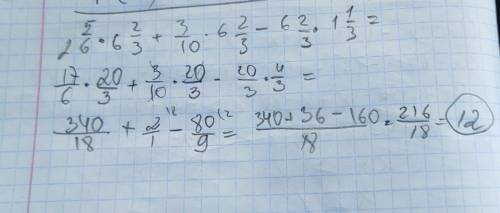 2 5/6 · 6 2/3 + 3/10 · 6 2/3 - 6 2/3 · 1 1/3 =
17/6 · 20/3 + 3/10 · 20/3 - 20/3 · 4/3 =
340/18 + 2/1 (18 - 80/9 (2 = 340 + 36 - 160/18 = 216/18 = 12